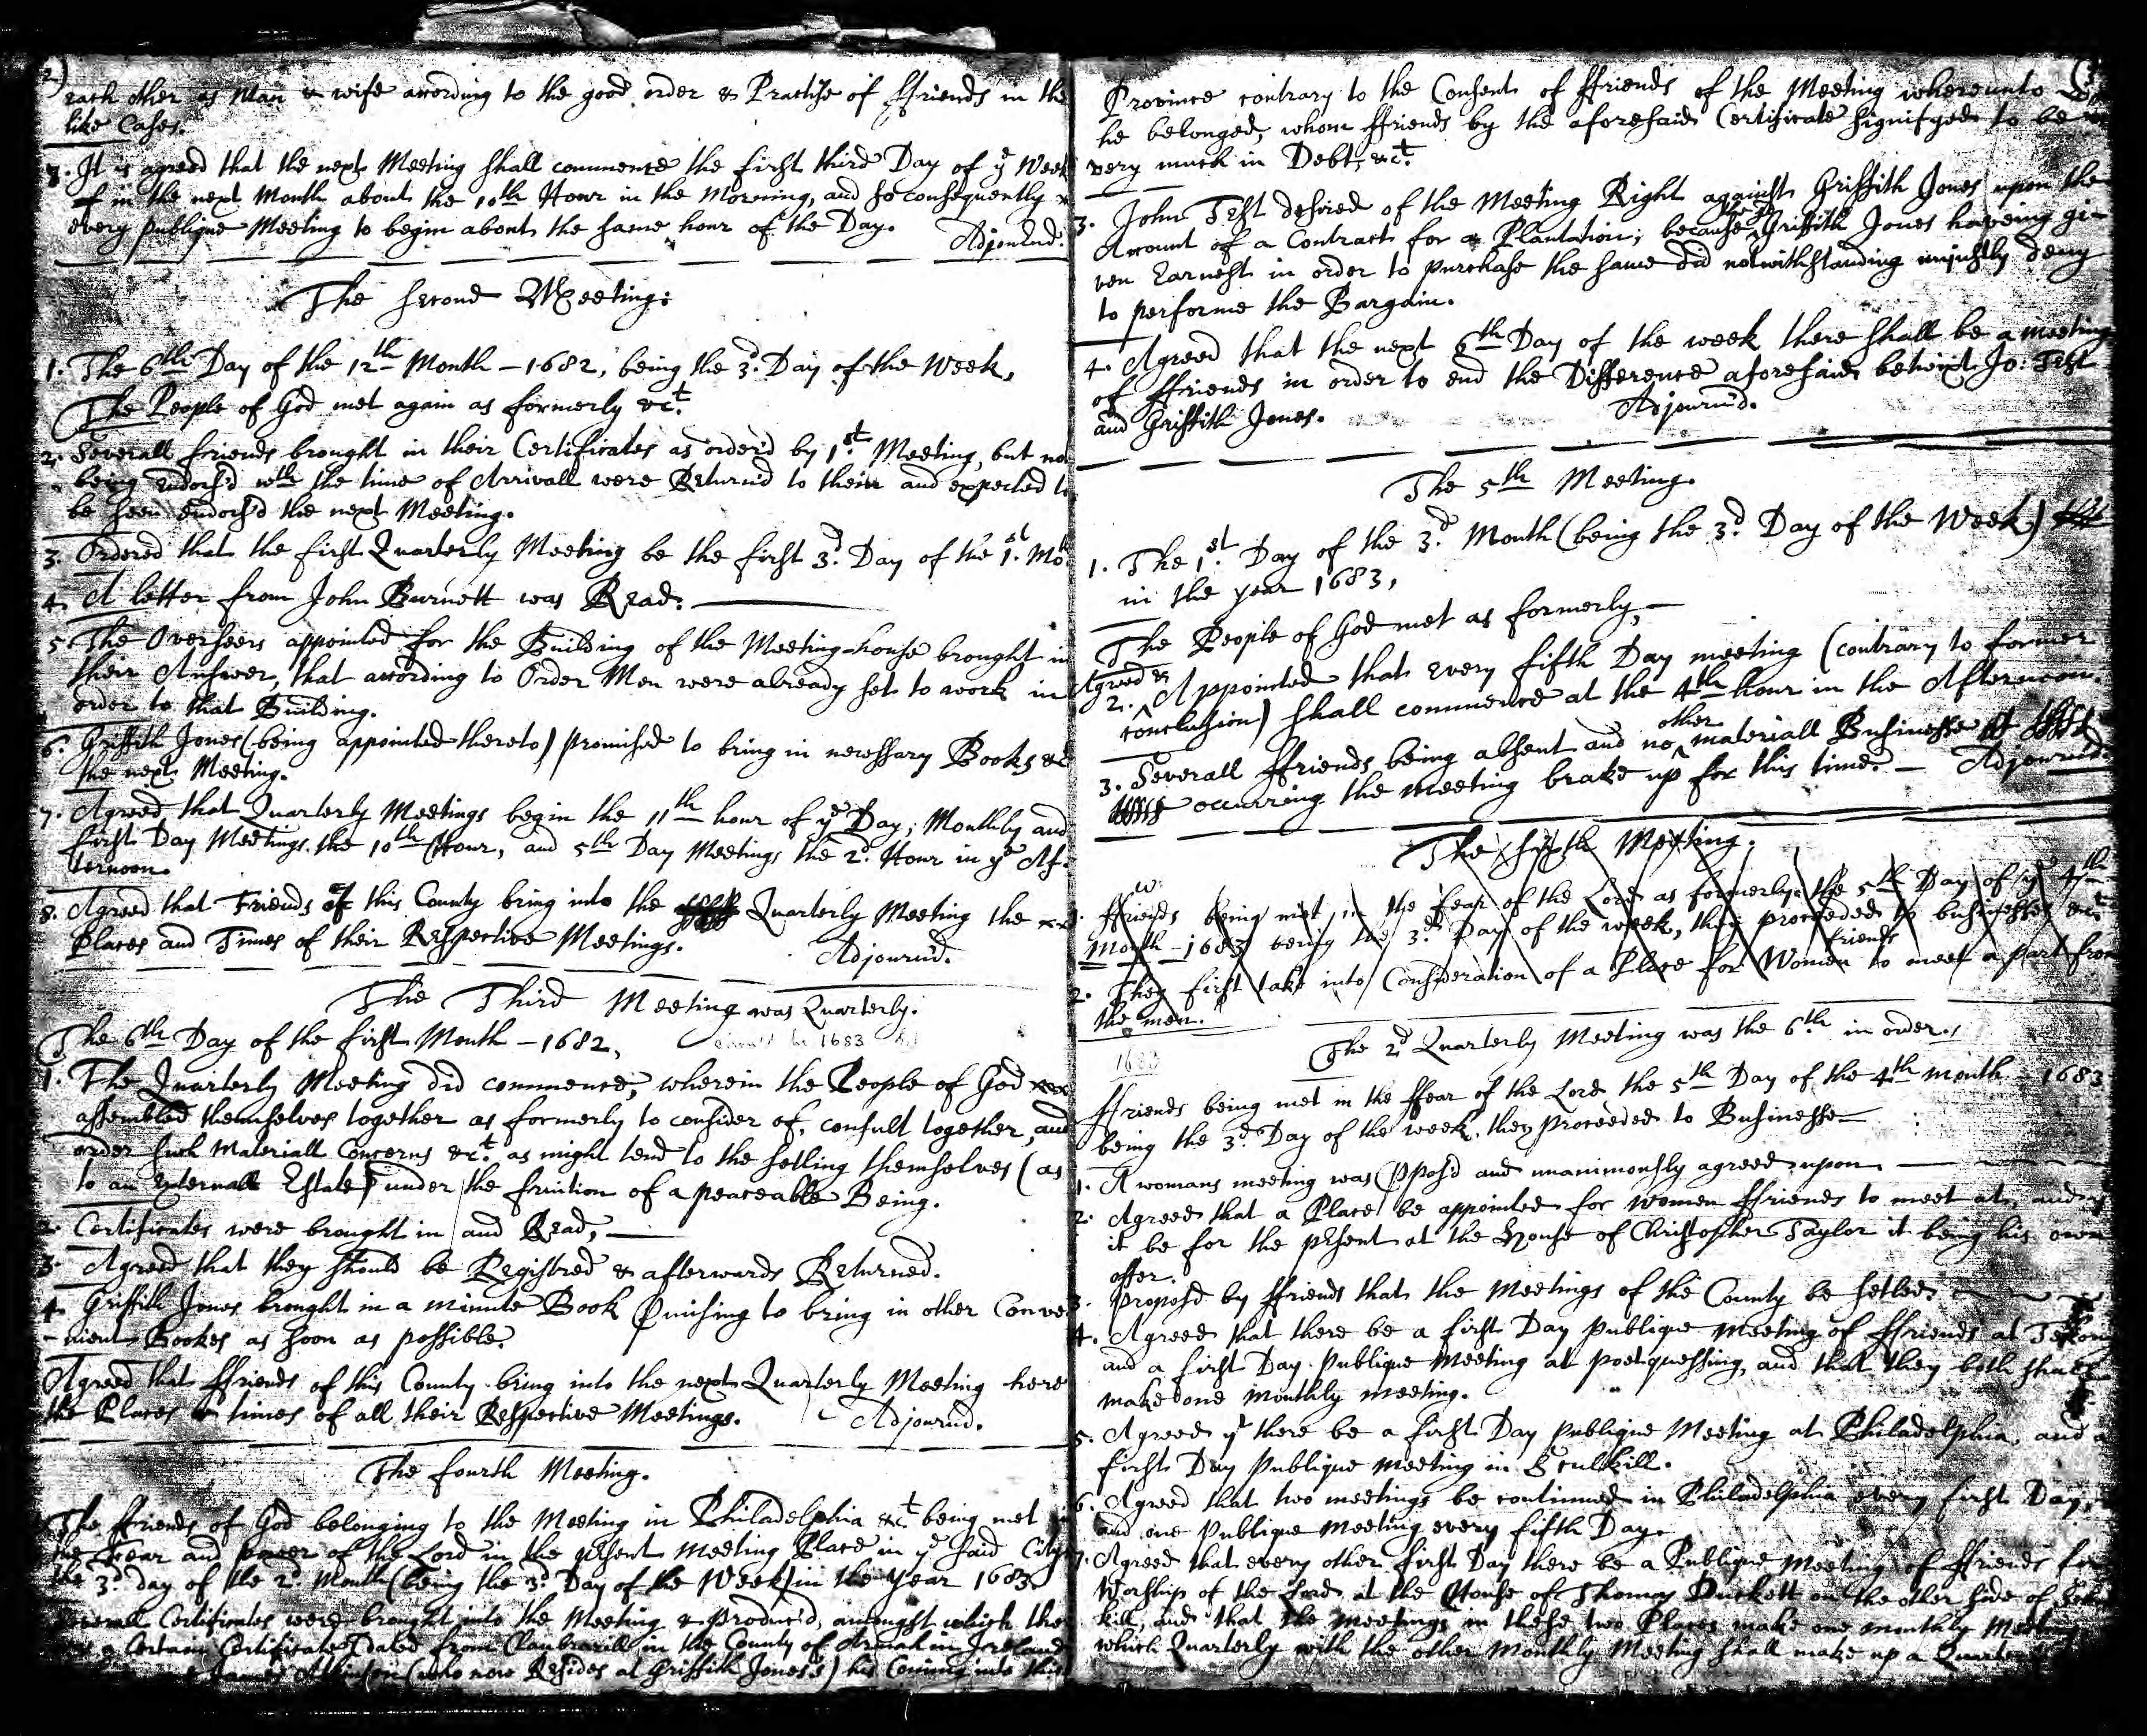 2)
each other as Man & wife according to the good order & Practise of ffriends in the
like Cases.
7. It is agreed that the next Meeting shall commence the first third Day of ye Week
in the next Month about the 10th Hour in the Morning, and so consequently
every publique Meeting to begin about the same hour of the Day. Adjournd.
The second Meeting:
1. The 6th Day of the 12th Month - 1682, being the 3d. Day of the Week,
The People of God met again as formerly &ct.
2. Severall friends brought in their Certificates as orderd by 1st. Meeting, but not
being Endors'd wth the time of Arrivall were Returnd to them and expected to
be seen endors'd the next Meeting.
3. Ordered that the first Quarterly Meeting be the first 3d. Day of the 1st. Mo:
4. A letter from John Burnett was Read.
5. The Overseers appointed for the Building of the Meeting-house brought in
their Answer, that according to Order Men were already set to work in
order to that Building.
6. Griffith Jones (being appointed thereto) promised to bring in necessary Books &c
the next Meeting.
7. Agreed that Quarterly Meetings begin the 11th hour of ye Day; Monthly and
first Day Meetings the 10th Hour, and 5th Day Meetings the 2d. Hour in ye Af-
ternoon.
8. Agreed that Friends of this County bring into the Quarterly Meeting the
Places and Times of their Respective Meetings. Adjournd.
The Third Meeting was Quarterly.
The 6th Day of the first Month - 1682, 1683
1. The Quarterly Meeting did commence, wherein the People of God
assembled themselves together as formerly to consider of, consult together, and
order such Materiall Concerns &ct. as might tend to the setling themselves (as
to an Externall Estate) under the fruition of a peaceable Being.
2. Certificates were brought in and Read,
3. Agreed that they should be Registred & afterwards Returned.
4. Griffith Jones brought in a minute Book Pmising to bring in other Conve
-nient Bookes as soon as possible.
Agreed that ffriends of this County bring into the next Quarterly Meeting here
the Places & times of all their Respective Meetings. Adjournd.
The fourth Meeting.
The ffriends of God belonging to the Meeting in Philadelphia &ct being met in
the Fear and power of the Lord in the psent Meeting Place in ye said City
the 3d. day of the 2d. Month (being the 3d Day of the Week) in the Year 1683.
Severall Certificates were brought into the Meeting & produc'd, amongst which there
was a Certain Certificate (dated from in the County of Armah in Ireland
James Atkinson (who now Resides at Griffith Jones's) his Coming into this
Province contrary to the Consent of ffriends of the Meeting whereunto
he belonged, whom ffriends by the aforesaid Certificate signifyed to be
very much in Debt, &ct.
3. John Test desired of the Meeting Right against Griffith Jones upon the
Account of a Contract for a Plantation; because the sd Griffith Jones haveing gi-
ven Earnest in order to purchase the same did notwithstanding unjustly deny
to performe the Bargain.
4. Agreed that the next 6th Day of the week there shall be a meeting
of ffriends in order to end the Difference aforesaid betwixt Jo: Test
and Griffith Jones. Adjournd.
The 5th Meeting.
1. The 1st. Day of the 3d. Month (being the 3d. Day of the Week)
in the year 1683,
The People of God met as formerly,
Agreed &
2. Appointed that every fifth Day meeting (contrary to former
conclusion) shall commence at the 4th hour in the Afternoon.
3. Severall ffriends being absent and no other materiall Businesse
occurring the meeting brake up for this time. Adjournd.
The sixth Meeting.
1. ffriends being met in the fear of the Lord as formerly the 5th Day of ye 4th
Month - 1683 being the 3d Day of the week, they proceeded to businesse &ct
2. They first take into Consideration of a Place for Women friends to meet a part from
the men.
The 2d Quarterly Meeting was the 6th in order.
1683
ffriends being met in the ffear of the Lord the 5th Day of the 4th month - 1683
being the 3d. Day of the week, they proceeded to Businesse
1. A womans meeting was Ppos'd and unanimously agreed upon
2. Agreed that a Place be appointed for women ffriends to meet at, and
it be for the psent at the House of Christopher Taylor it being his own
offer.
3. Propos'd by ffriends that the Meetings of the County be setled.
4. Agreed that there be a first Day publique meeting of ffriends at Tekony
and a first Day publique Meeting at poetquessing, and that they both shall
make one monthly meeting.
5. Agreed yt there be a first Day publique Meeting at Philadelphia, and a
first Day Publique meeting in Sculkill.
6. Agreed that two meetings be continued in Philadelphia every first Day,
and one Publique meeting every fifth Day.
7. Agreed that every other first Day there be a Publique meeting of ffriends for
Worship of the Lord at the House of Thomas Duckett on the other side of
kill, and that the meetings in these two Places make one monthly Meeting
which Quarterly with the other Monthly Meeting shall make up a Quarterly